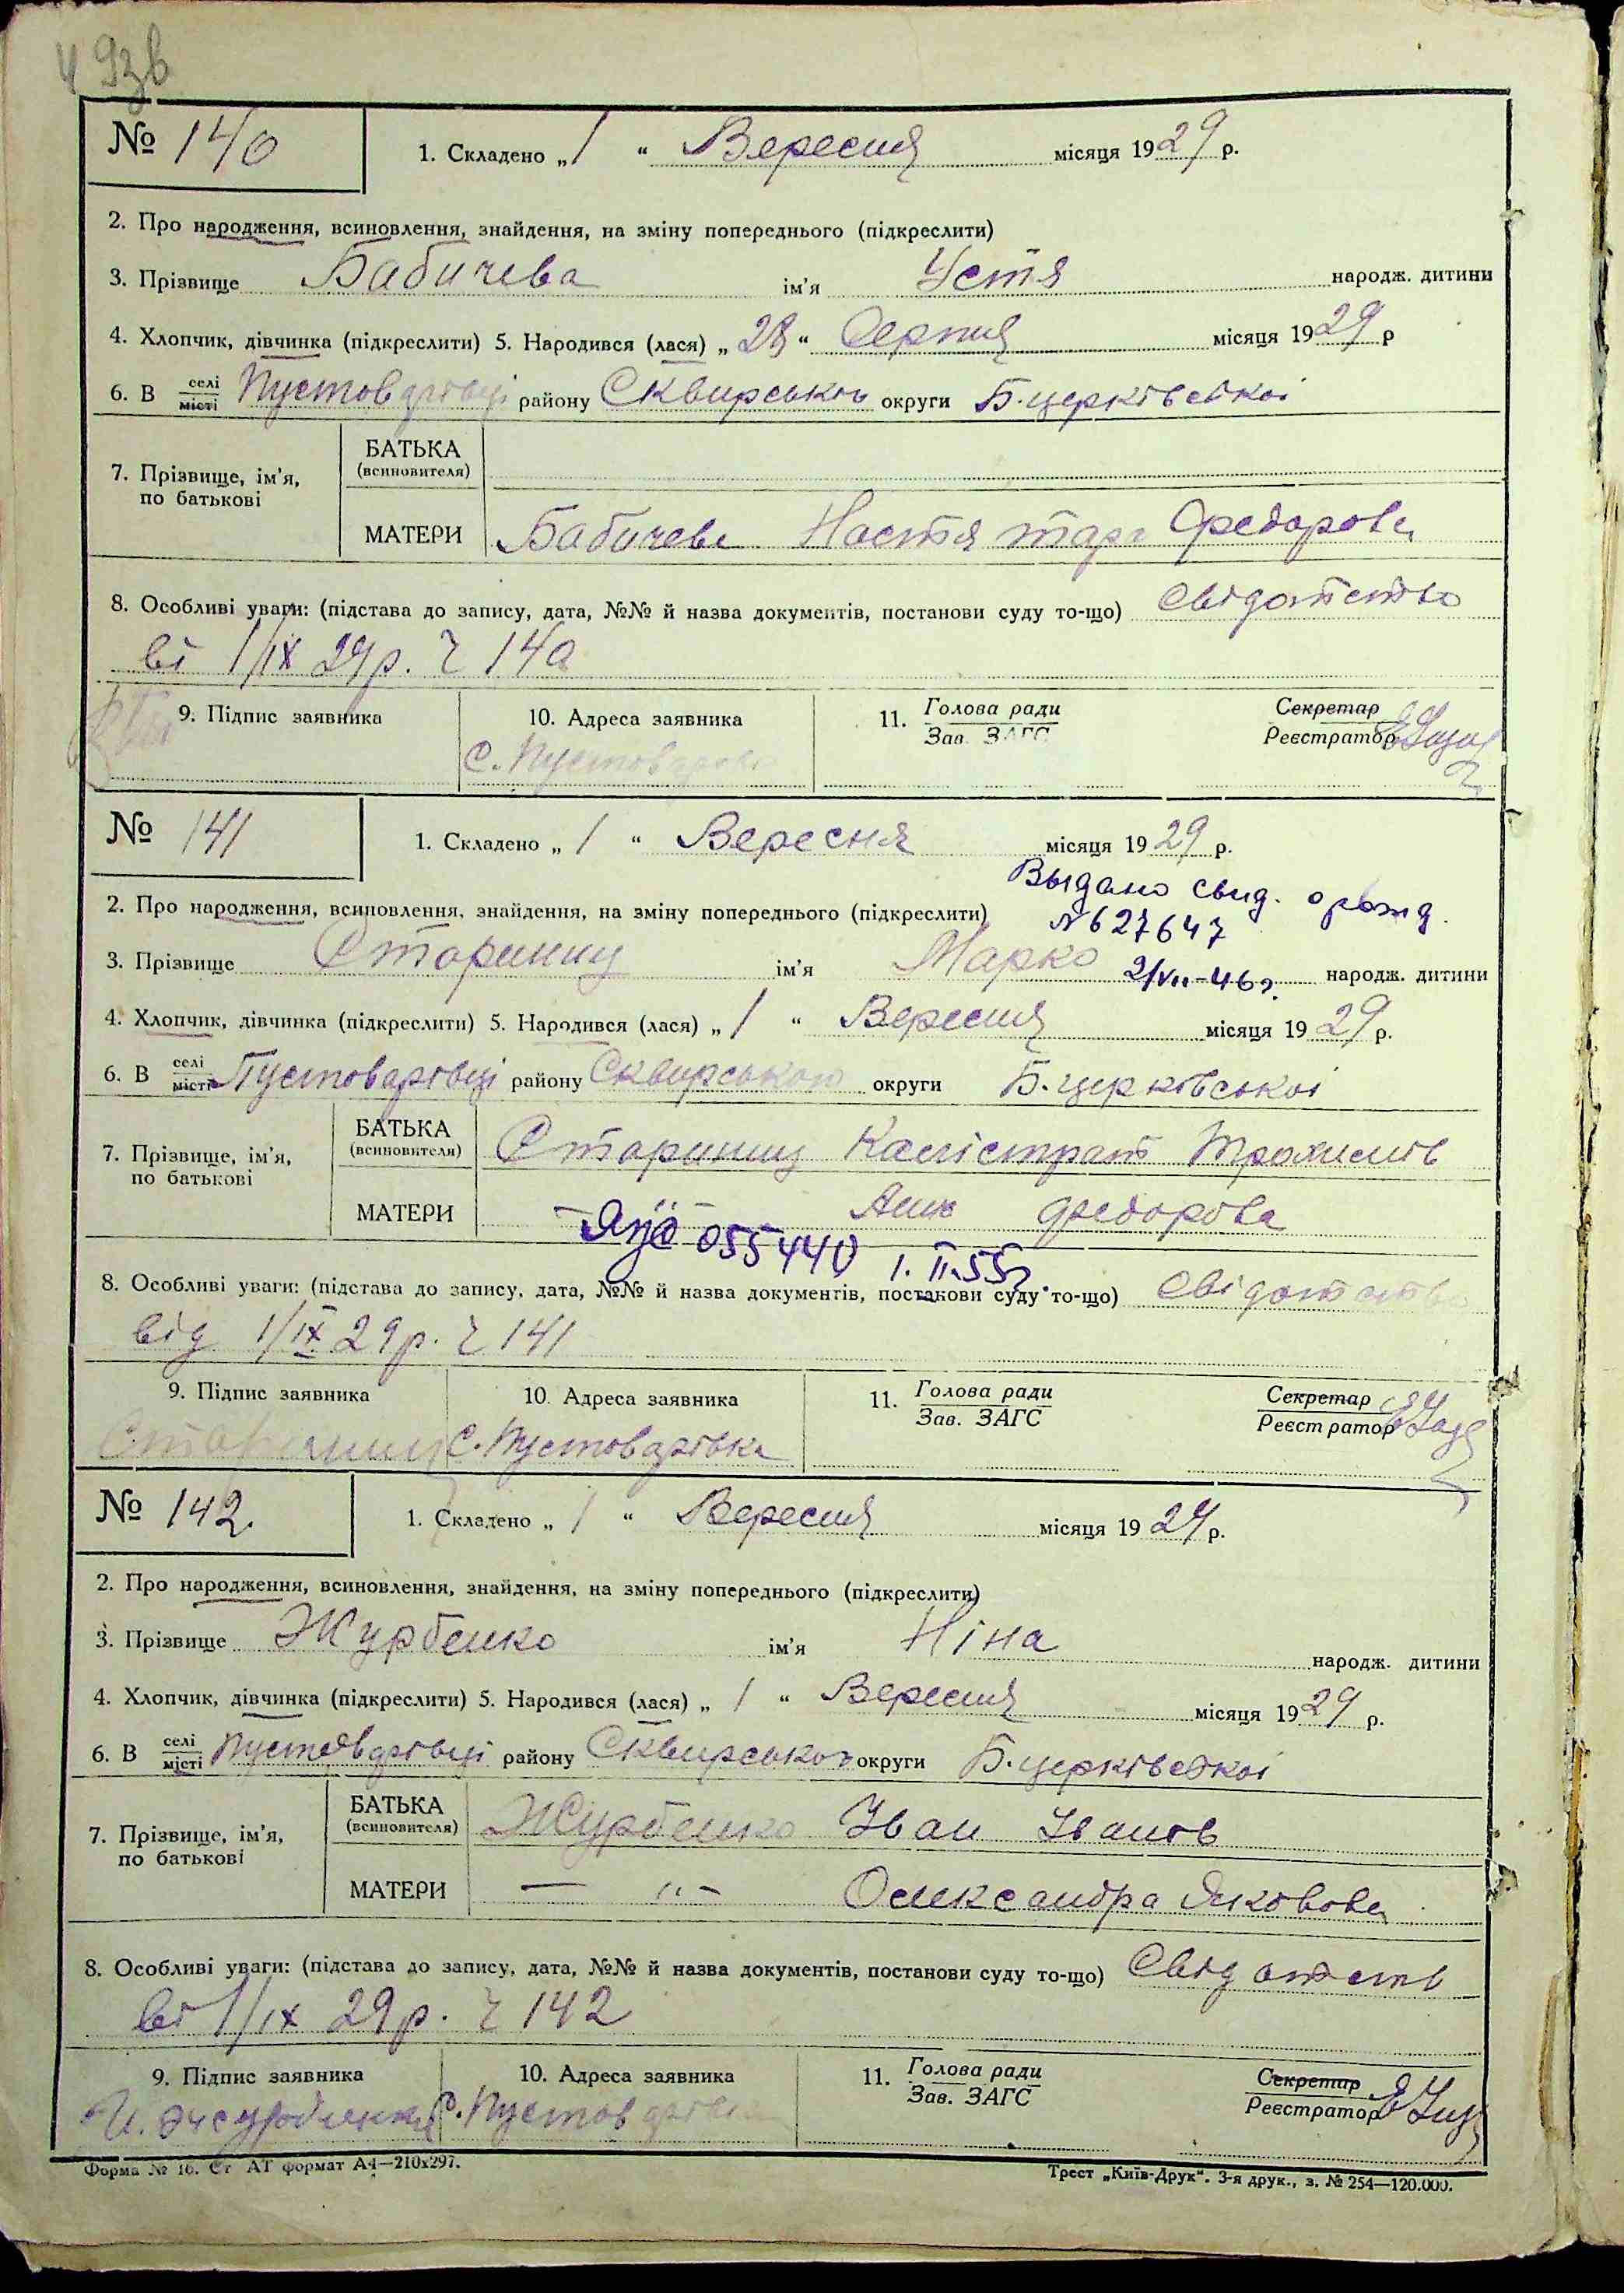 493в
№ 140
1. Складено „1“ Вересня місяця 1929 р.
2. Про народження, всиновлення, знайдення, на зміну попереднього (підкреслити)
3. Прізвище Бабичева ім'я Устя народж. дитини
4. Хлопчик, дівчинка (підкреслити) 5. Народився (лася) „28“ Серпня місяця 1929 р
6. В селі місті Пустоварівці району Сквирського округи Б.церківської
7. Прізвище, ім'я, по батькові
БАТЬКА (всиновителя)
МАТЕРИ Бабичева Настя Федорова
8. Особливі уваги: (підстава до запису, дата, №№ й назва документів, постанови суду то-що) Свідотство
ві 1/IX 29р. ч 140
9. Підпис заявника 10. Адреса заявника 11. Голова ради Зав. ЗАГС Секретар Реєстратор
с. Пустоварівка
№ 141
1. Складено „1“ Вересня місяця 1929 р.
Выдано свид. о рожд.
2. Про народження, всиновлення, знайдення, на зміну попереднього (підкреслити)
N 627647
3. Прізвище Сторишиц ім'я Марко народж. дитини
2/VII-46 г.
4. Хлопчик, дівчинка (підкреслити) 5. Народився (лася) „1“ Вересня місяця 1929 р.
6. В селі місті Пустоварівці району Сквирського округи Б.церківської
7. Прізвище, ім'я, по батькові
БАТЬКА (всиновителя) Каністрат
МАТЕРИ Федорова
055440 1.II.55г.
8. Особливі уваги: (підстава до запису, дата, №№ й назва документів, постанови суду то-що) Свідотство
від 1/IX 29р. ч 141
9. Підпис заявника 10. Адреса заявника 11. Голова ради Зав. ЗАГС Секретар Реєстратор
с. Пустоварівка
№ 142.
1. Складено „1“ Вересня місяця 1929 р.
2. Про народження, всиновлення, знайдення, на зміну попереднього (підкреслити)
3. Прізвище Журбенко ім'я Ніна народж. дитини
4. Хлопчик, дівчинка (підкреслити) 5. Народився (лася) „1“ Вересня місяця 1929 р.
6. В селі місті Пустоварівці району Сквирського округи Б.церківської
7. Прізвище, ім'я, по батькові
БАТЬКА (всиновителя) Журбенко Іван Іванов
МАТЕРИ — „ — Олександра Яковова
8. Особливі уваги: (підстава до запису, дата, №№ й назва документів, постанови суду то-що) Свідотств
ві 1/IX 29р. ч 142
9. Підпис заявника 10. Адреса заявника 11. Голова ради Зав. ЗАГС Секретар Реєстратор
И. Журбенко с. Пустоварівка
Форма № 16. Ст АТ формат А4—210х297.
Трест „Київ-Друк“. 3-я друк., з. № 254—120.000.